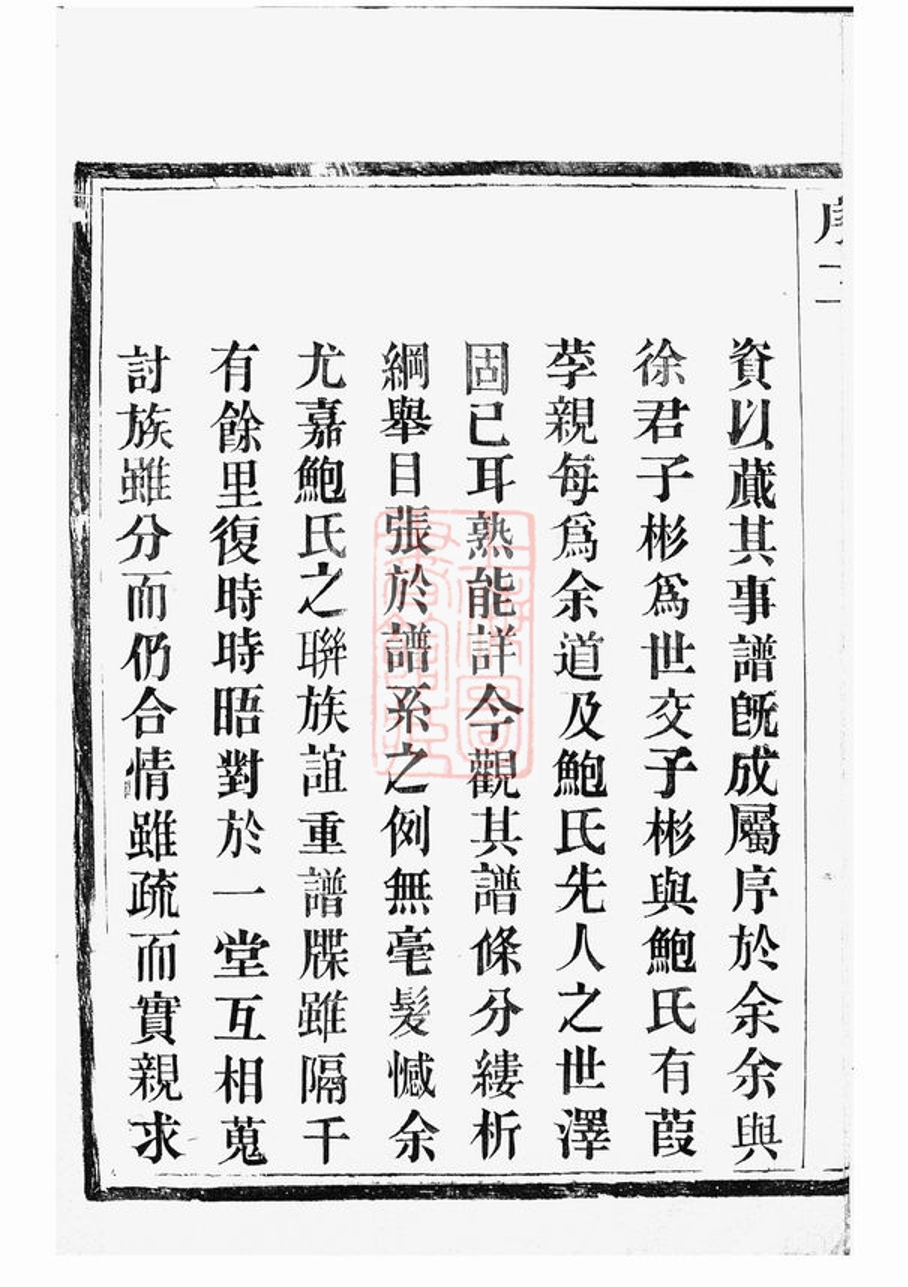 序 二
資以蕆其事譜旣成屬序於余余與
徐君子彬爲世交子彬與鮑氏有葭
莩親每爲余道及鮑氏先人之世澤
固已耳熟能詳今觀其譜條分縷析
綱舉目張於譜系之例無毫髮憾余
尤嘉鮑氏之聯族誼重譜牒雖隔千
有餘里復時時晤對於一堂互相蒐
討族雖分而仍合情雖疏而實親求